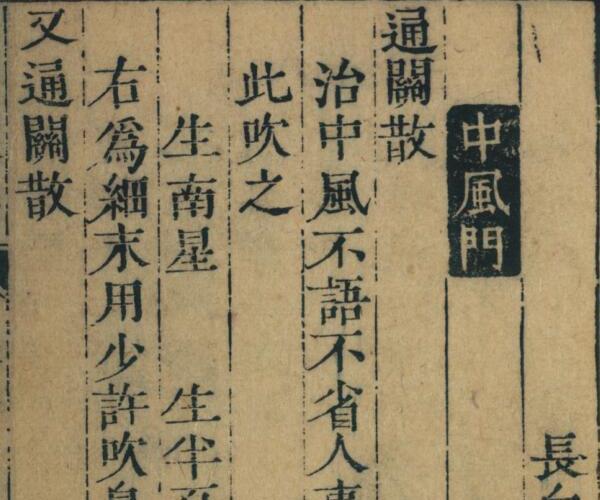 長
中風門
通關散
治中風不語不省人事
此吹之
生南星 生半
右爲細末用少許吹鼻
又通關散